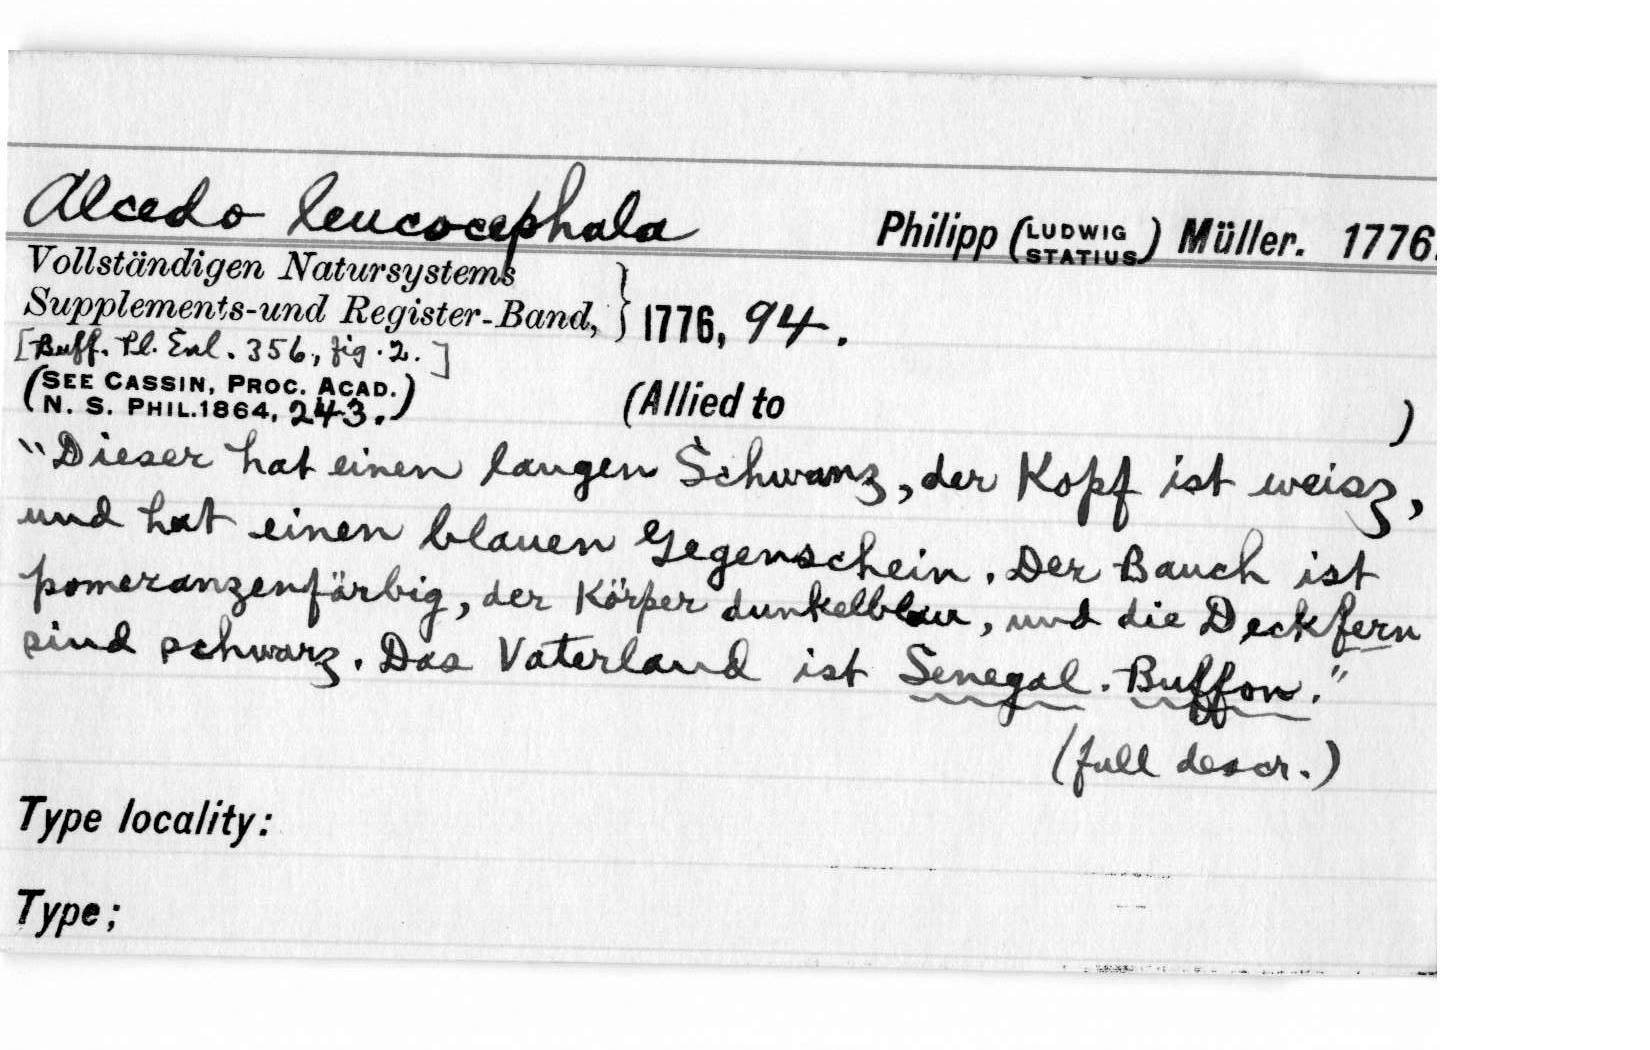 Alcedo leucocephala
Philipp (LUDWIG STATIUS) Müller. 1776.
Vollständigen Natursystems
Supplements-und Register-Band, } 1776, 94.
[Buff. Pl. Enl. 356, fig. 2.]
(SEE CASSIN, PROC. ACAD.
N. S. PHIL. 1864, 243.)
(Allied to )
"Dieser hat einen langen Schwanz, der Kopf ist weisz,
und hat einen blauen Gegenschein. Der Bauch ist
pomeranzenfärbig, der Körper dunkelblau, und die Deckfern
sind schwarz. Das Vaterland ist Senegal. Buffon."
(full descr.)
Type locality:
Type;